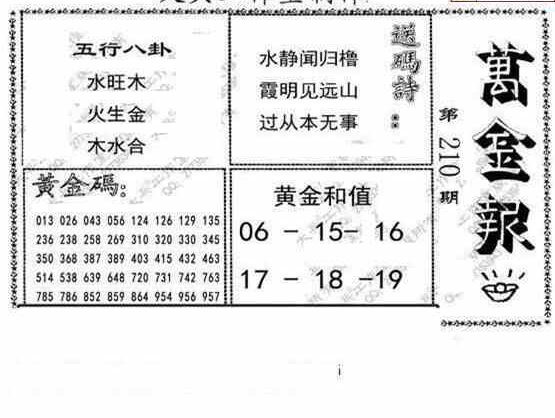 五行八卦
水旺木
火生金
木水合
送碼詩：
水静闻归橹
霞明见远山
过从本无事
萬金報
第210期
黃金碼：
013 026 043 056 124 126 129 135
236 238 258 269 310 320 330 345
350 368 387 389 403 415 432 463
514 538 639 648 720 731 742 763
785 786 852 859 864 954 956 957
黄金和值
06 - 15- 16
17 - 18 -19
i